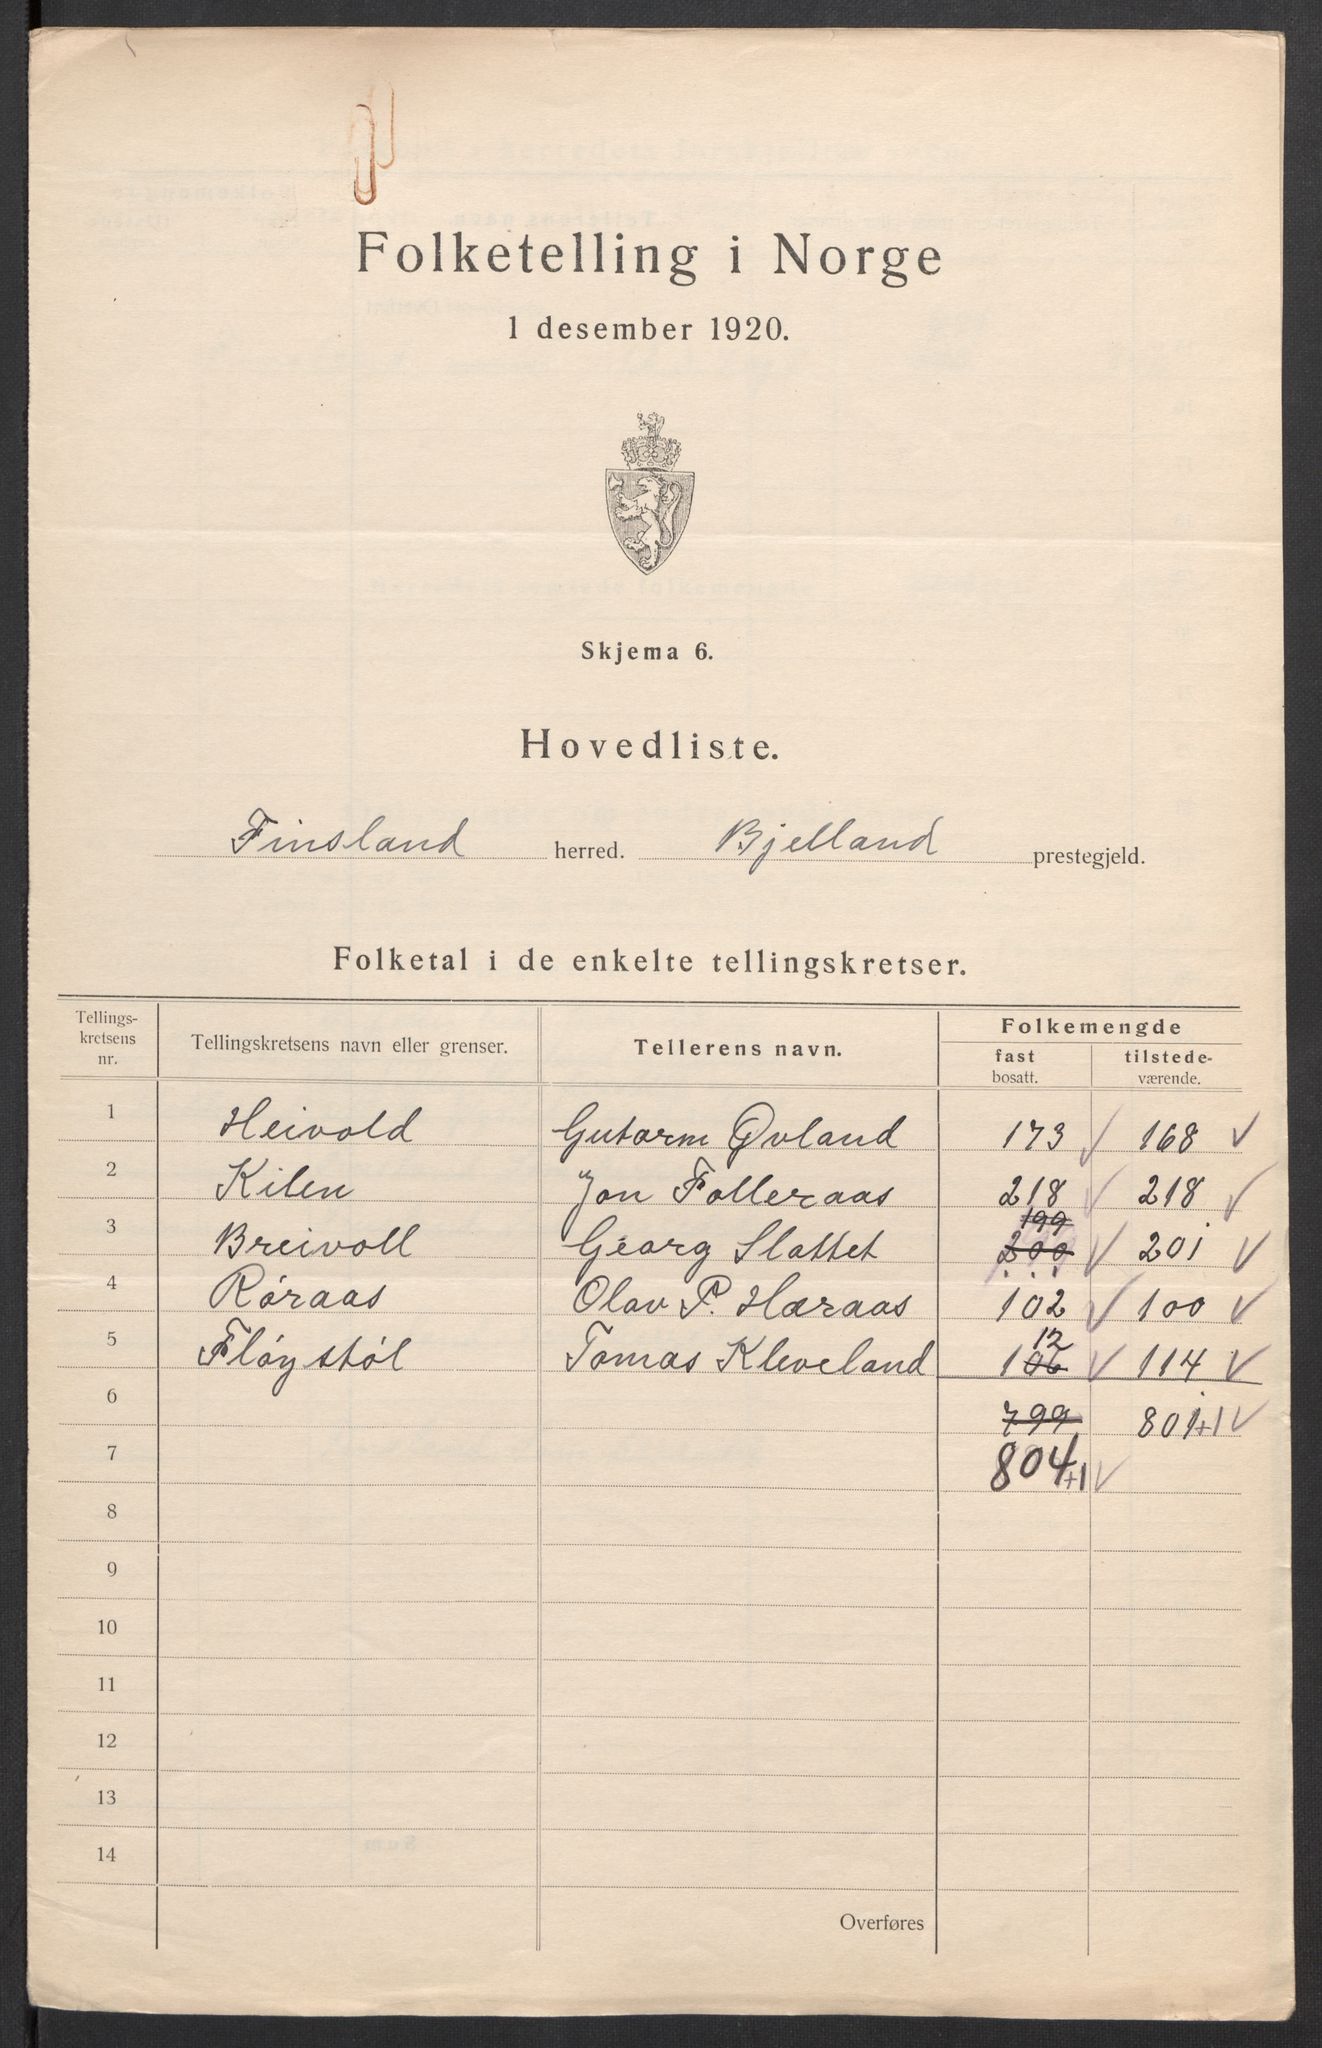 Folketelling i Norge
1 desember 1920.
Skjema 6.
Hovedliste.
Finsland herred. Bjelland prestegjeld.
Folketal i de enkelte tellingskretser.
Tellings-kretsens nr. Tellingskretsens navn eller grenser. Tellerens navn. Folkemengde
fast bosatt. tilstede-værende.
1 Heivold Gutorm Øvland 173 168
2 Kilen Jon Folleraas 218 218
199
3 Breivoll Georg Slattet 200 201
4 Røraas Olav P. Haraas 102 100
12
5 Fløystøl Tomas Kleveland 106 114
6 799 801+1
7 804+1
8
9
10
11
12
13
14
Overføres